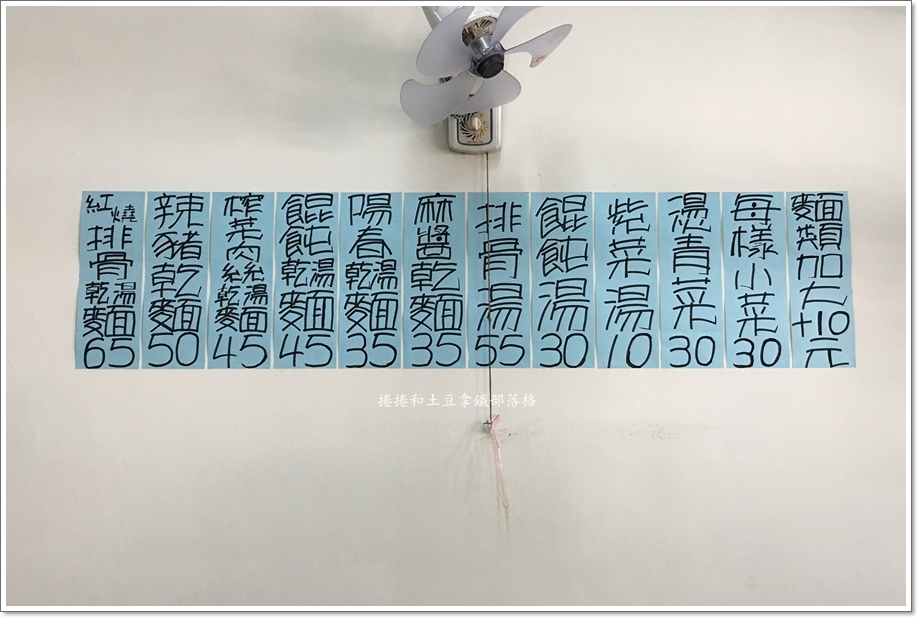 紅燒排骨乾湯麵65
辣豬乾麵50
榨菜肉絲乾湯麵45
餛飩乾湯麵45
陽春乾湯麵35
麻醬乾麵35
排骨湯55
餛飩湯30
紫菜湯10
燙青菜30
每樣小菜30
麵類加大+10元
捲捲和土豆拿鐵部落格